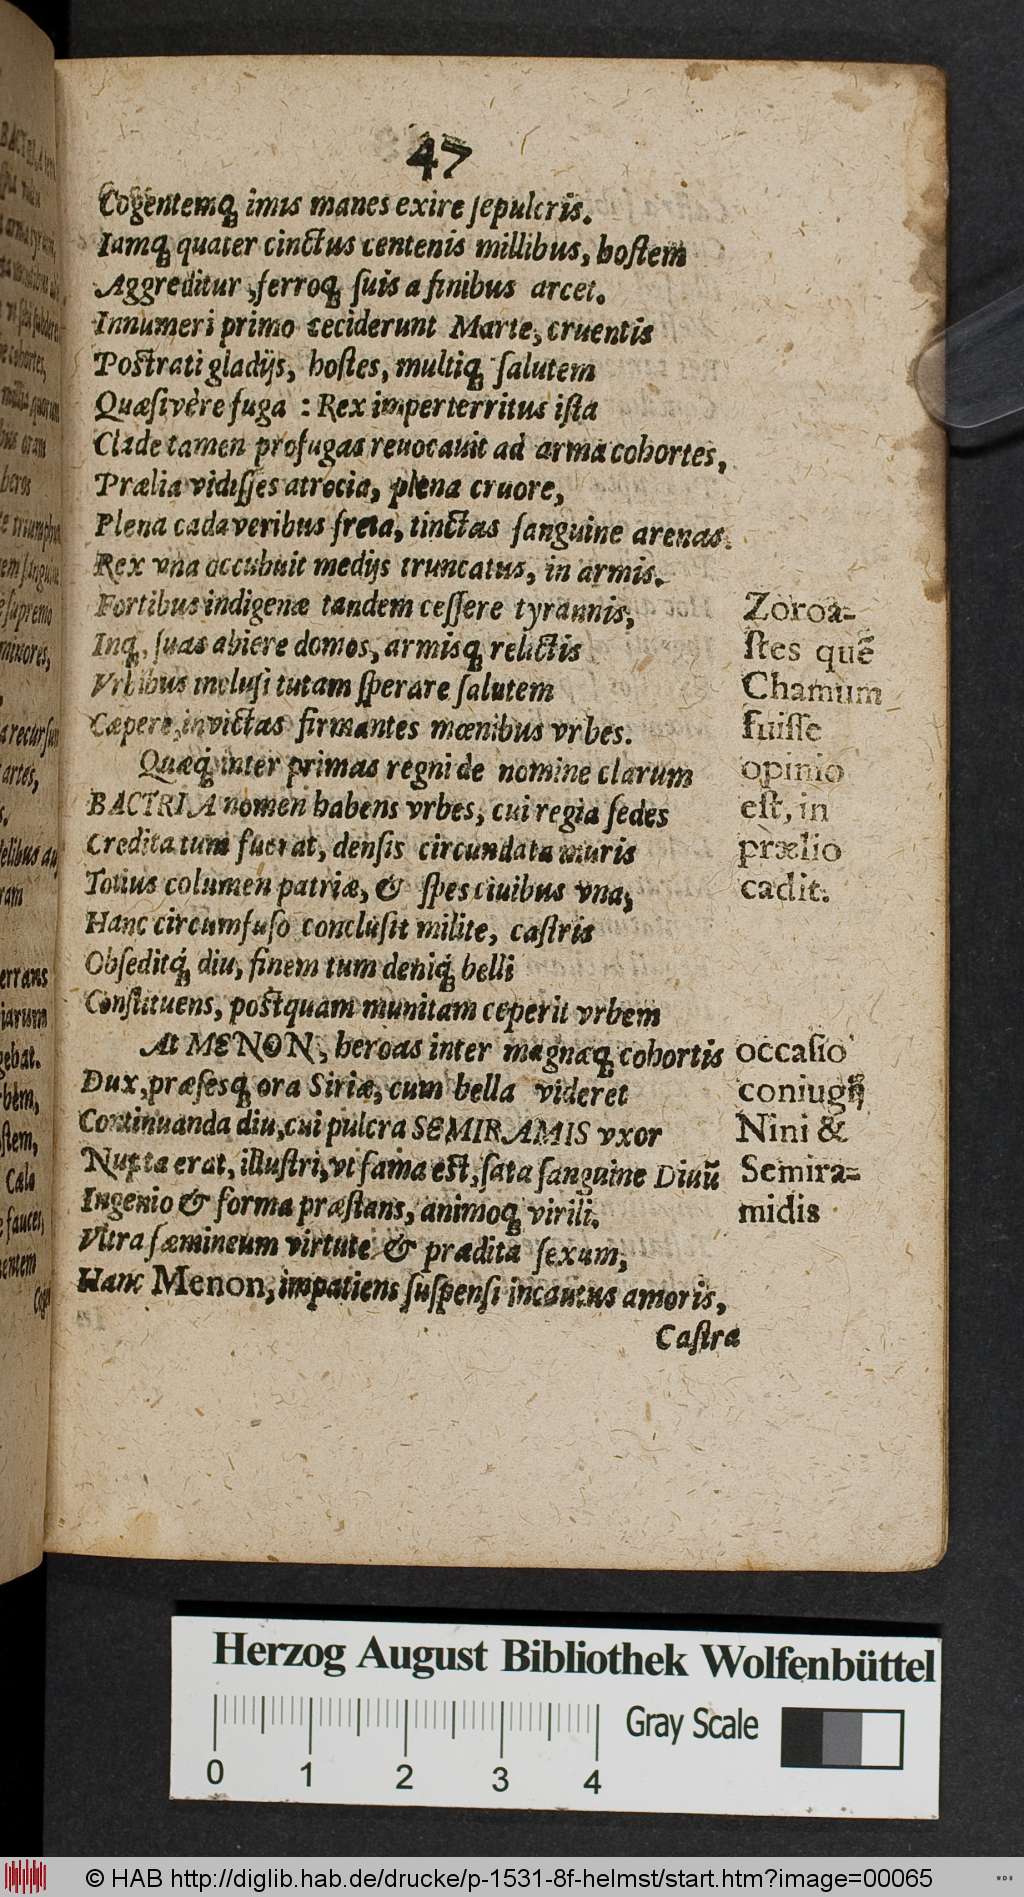 47
Cogentemq́; imis manes exire sepulcris.
Iamq́; quater cinctus centenis millibus, hostem
Aggreditur, ferroq́; suis a finibus arcet.
Innumeri primo ceciderunt Marte, cruentis
Postrati gladijs, hostes, multiq́; salutem
Quæsivère fuga : Rex imperterritus ista
Clade tamen profugas reuocauit ad arma cohortes,
Prælia vidisses atrocia, plena cruore,
Plena cadaveribus freta, tinctas sanguine arenas.
Rex vna occubuit medijs truncatus, in armis.
Fortibus indigenæ tandem cessere tyrannis,
Inq́; suas abiere domos, armisq́; relictis
Vrbibus inclusi tutam sperare salutem
Cæpere, invictas firmantes mœnibus vrbes.
Quæq́; inter primas regni de nomine clarum
BACTRIA nomen habens vrbes, cui regia sedes
Credita tum fuerat, densis circundata muris
Totius columen patriæ, & spes ciuibus vna,
Hanc circumfuso conclusit milite, castris
Obseditq́; diu, finem tum deniq́; belli
Constituens, postquam munitam ceperit vrbem
At MENON, heroas inter magnæq́; cohortis
Dux, præsesq́; ora Siriæ, cum bella videret
Continuanda diu, cui pulcra SEMIRAMIS vxor
Nupta erat, illustri, vt fama est, sata sanguine Diuũ
Ingenio & forma præstans, animoq́; virili.
Vltra fæmineum virtute & prædita sexum,
Hanc Menon, impatiens suspensi incautus amoris,
Castra
Zoroa-
stes quẽ
Chamum
fuisse
opinio
est, in
prælio
cadit.
occasio
coniugij
Nini &
Semira-
midis
Herzog August Bibliothek Wolfenbüttel
Gray Scale
0 1 2 3 4
© HAB http://diglib.hab.de/drucke/p-1531-8f-helmst/start.htm?image=00065